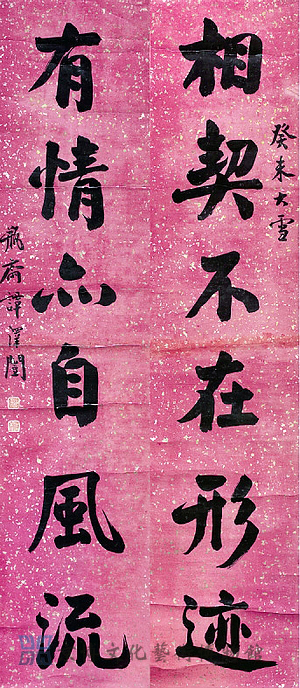 相契不在形迹
癸未大雪
有情亦自風流
瓶齋譚澤闓
文化藝
館